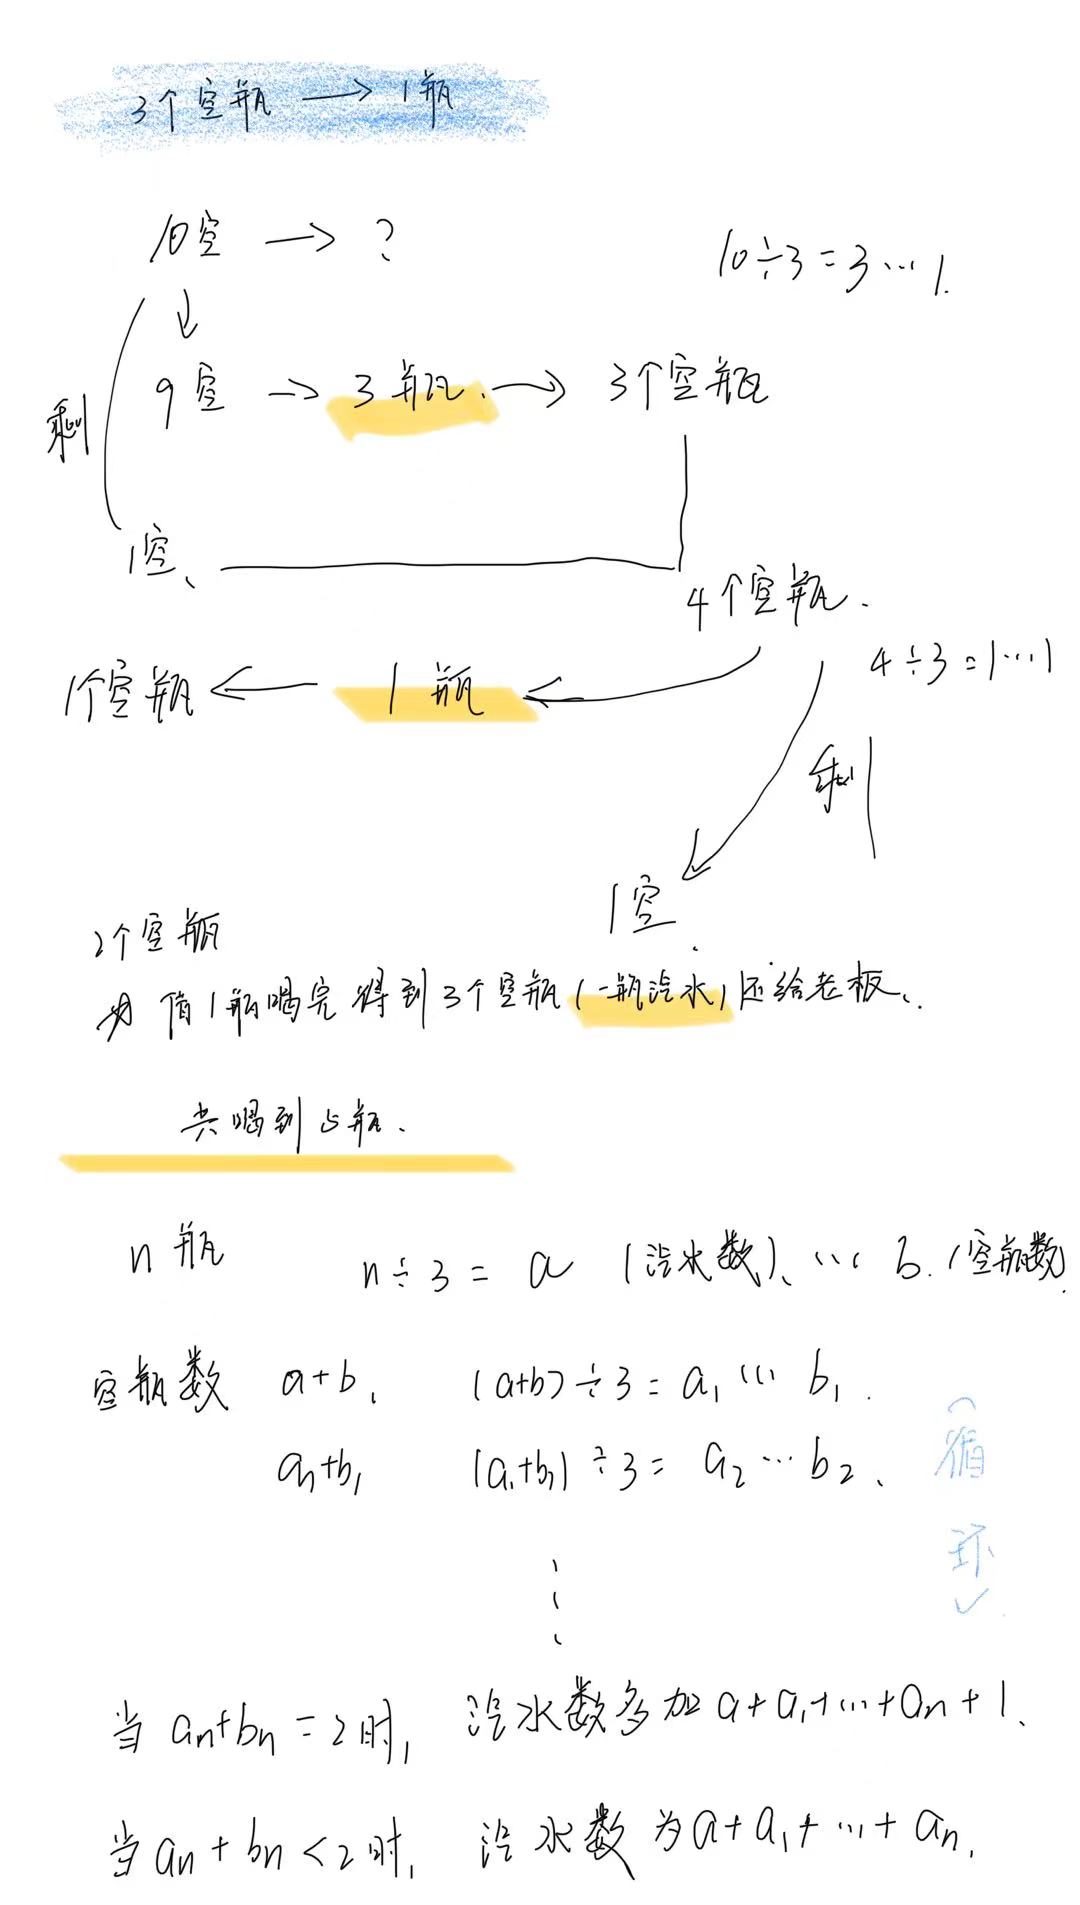 3个空瓶 → 1瓶
10空 → ?
10÷3=3…1.
↓
剩
9空 → 3瓶. → 3个空瓶
1空、
4个空瓶.
4÷3=1…1
1个空瓶 ← 1瓶 ←
剩
1空.
2个空瓶
借1瓶喝完得到3个空瓶(一瓶汽水)还给老板、
共喝到5瓶.
n瓶 n÷3= a (汽水数)、… b. (空瓶数)
空瓶数 a+b, (a+b)÷3=a₁…b₁.
a₁+b₁ (a₁+b₁)÷3= a₂…b₂、
循
环
⋮
当 an+bn=2时, 汽水数多加a+a₁+…+an+1、
当an+bn<2时, 汽水数为a+a₁+…+an,